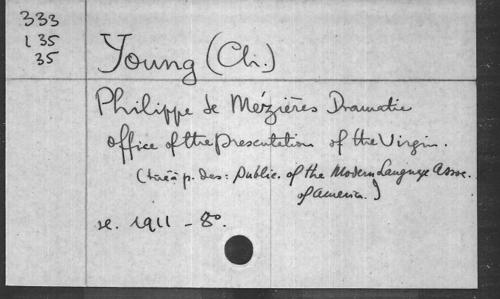 333
135
35
Young (Ch.)
Philippe de Mézières Dramatic
office of the presentation of the Virgin.
(tiré à p. des: Public. of the Modern Language Assoc.
of America.)
1911 - 8º.